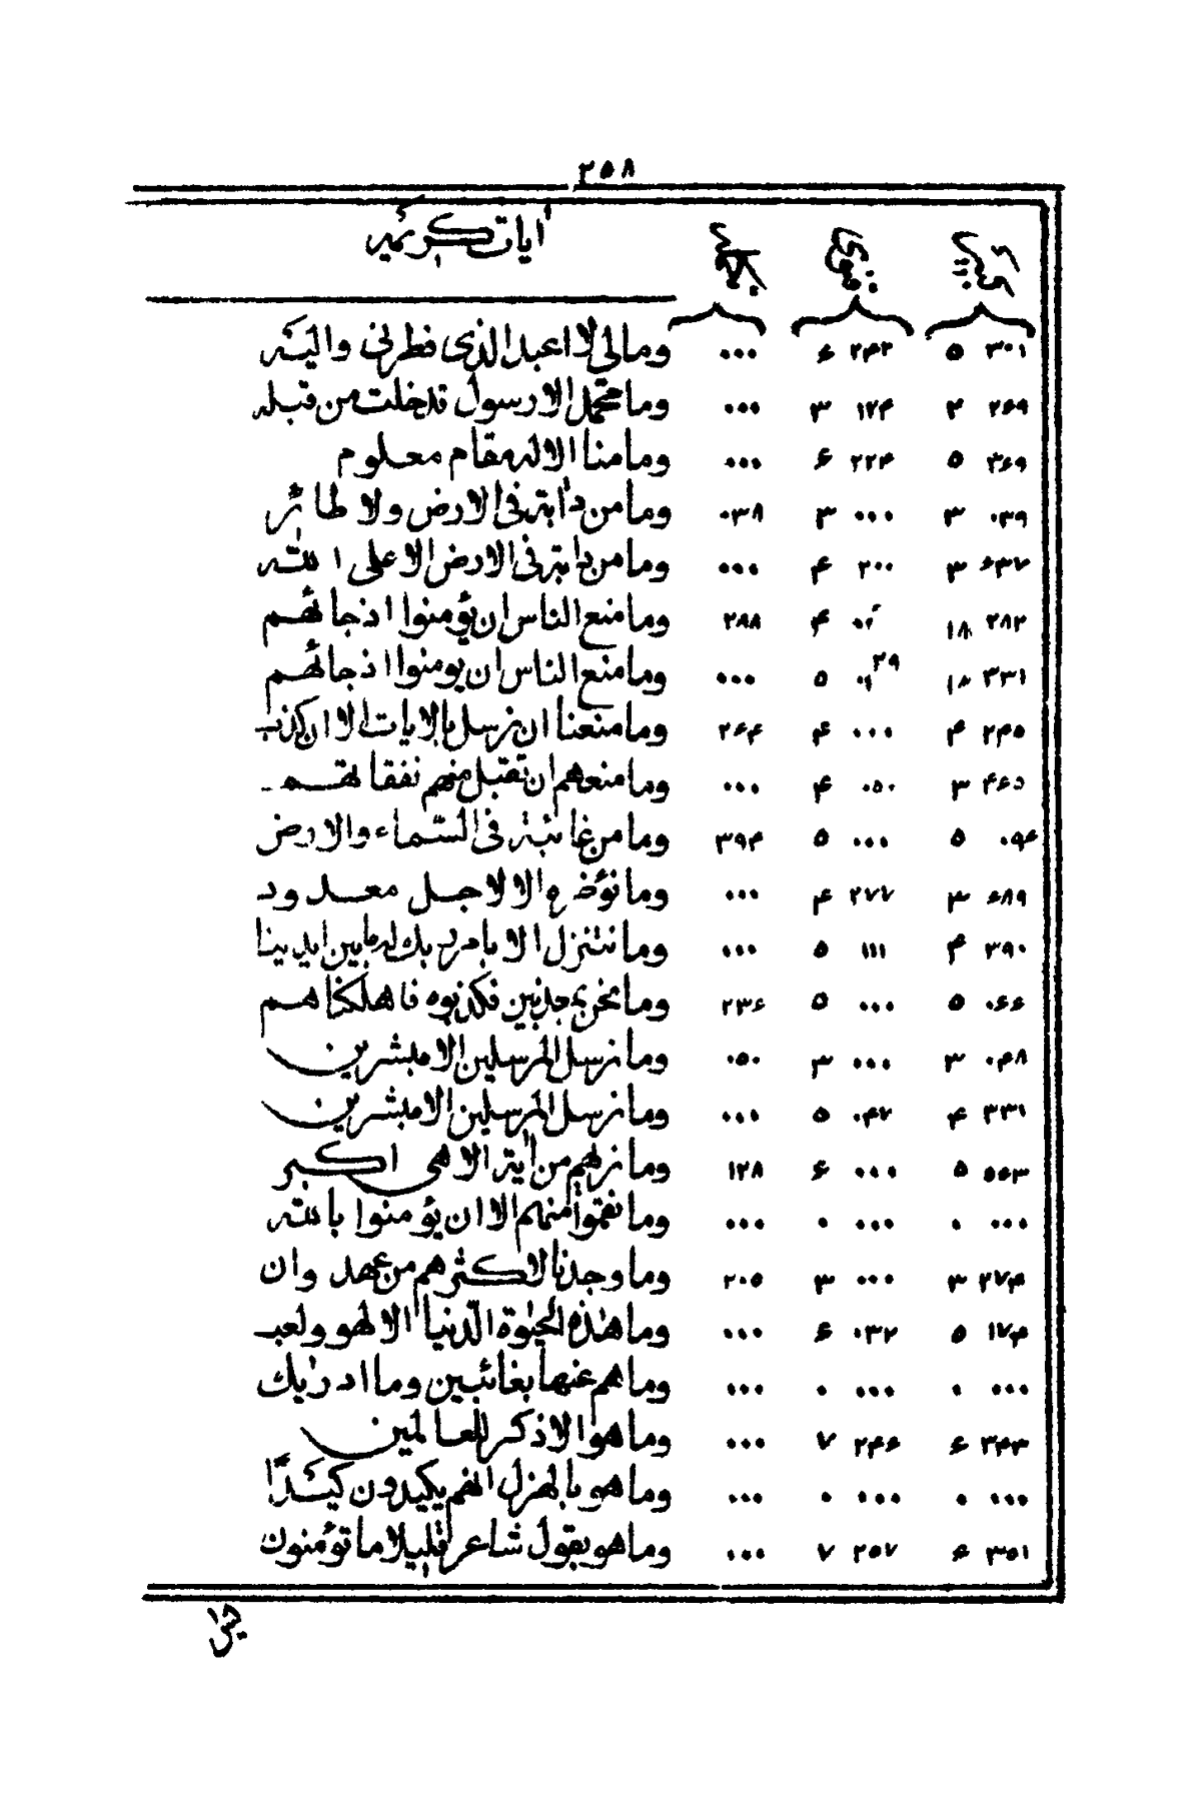 ٢٥٨
اٰيات كريمه
٣٠١ ٥ ٢٤٢ ۶ ٠٠٠ ومالی لا اعبد الذی فطرنی والیه
٢۶٩ ٢ ١٢۴ ٣ ٠٠٠ وما محمّد الا رسول قد خلت من قبله
٣۶٩ ٥ ٢٢۴ ۶ ٠٠٠ وما منا الا له مقام معلوم
٠٣٩ ٣ ٠٠٠ ٣ ٠٣٨ وما من دابة فی الارض ولا طائر
۶٣٧ ٣ ٢٠٠ ۴ ٠٠٠ وما من دابة فی الارض الا علی الله
٢٨٢ ١٨ ۴ ٢٨٨ وما منع الناس ان يؤمنوا اذ جائهم
٣٣١ ١٨ ٥ ٠٠٠ وما منع الناس ان يومنوا اذ جائهم
٢۴٥ ۴ ٠٠٠ ۴ ٢۶۴ وما منعنا ان نرسل بالايات الا ان كذب
۴۶٥ ٣ ٠٥٠ ۴ ٠٠٠ وما منعهم ان تقبل منهم نفقاتهم
٠٩۴ ٥ ٠٠٠ ٥ ٣٩۴ وما من غائبة فی السّماء والارض
۶٨٩ ٣ ٢٧٧ ۴ ٠٠٠ وما نؤخره الا لاجل معدود
٣٩٠ ۴ ١١١ ٥ ٠٠٠ وما نتنزل الا بامر ربك له ما بين ايدينا
٠۶۶ ٥ ٠٠٠ ٥ ٢٣۶ وما نحن بمعذبين فكذبوه فاهلكناهم
٠۴٨ ٣ ٠٠٠ ٣ ٠٥٠ وما نرسل المرسلين الا مبشرين
٣٣١ ۴ ٠۴٧ ٥ ٠٠٠ وما نرسل المرسلين الا مبشرين
٥٥٣ ٥ ٠٠٠ ۶ ١٢٨ وما نريهم من اية الا هی اكبر
٠٠٠ ٠ ٠٠٠ ٠ ٠٠٠ وما نقموا منهم الا ان يؤمنوا بالله
٢٧۴ ٣ ٠٠٠ ٣ ٢٠٥ وما وجدنا لاكثرهم من عهد وان
١٧۴ ٥ ٠٣٢ ۶ ٠٠٠ وما هٰذه الحيٰوة الدّنيا الا لهو ولعب
٠٠٠ ٠ ٠٠٠ ٠ ٠٠٠ وما هم عنها بغائبين وما ادريٰك
٣۴٣ ۶ ٢۴۶ ٧ ٠٠٠ وما هو الا ذكر للعالمين
٠٠٠ ٠ ٠٠٠ ٠ ٠٠٠ وما هو بالهزل انهم يكيدون كيدًا
٣٥١ ۶ ٢٥٧ ٧ ٠٠٠ وما هو بقول شاعر قليلا ما تؤمنون